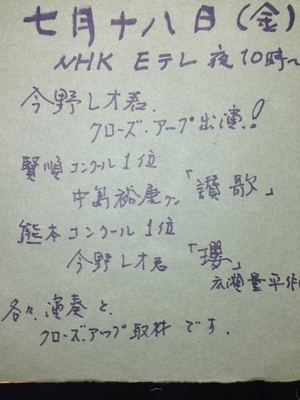 七月十八日(金)
NHK Eテレ 夜10時〜
今野レオ君.
クローズ.アップ出演!!
賢順コンクール1位
中島裕康クン「讃歌」
熊本コンクール1位
今野レオ君「瓔」
広瀬量平作
各々演奏と
クローズ.アップ取材です.